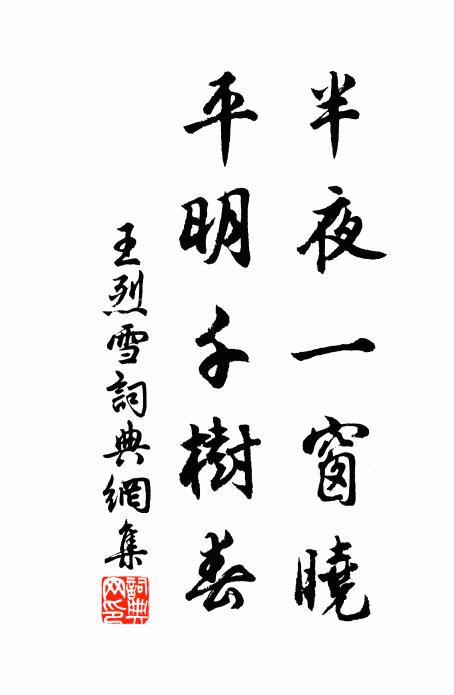 半夜一窗曉
平明千樹春
王烈雪詞典網集
詞典網印